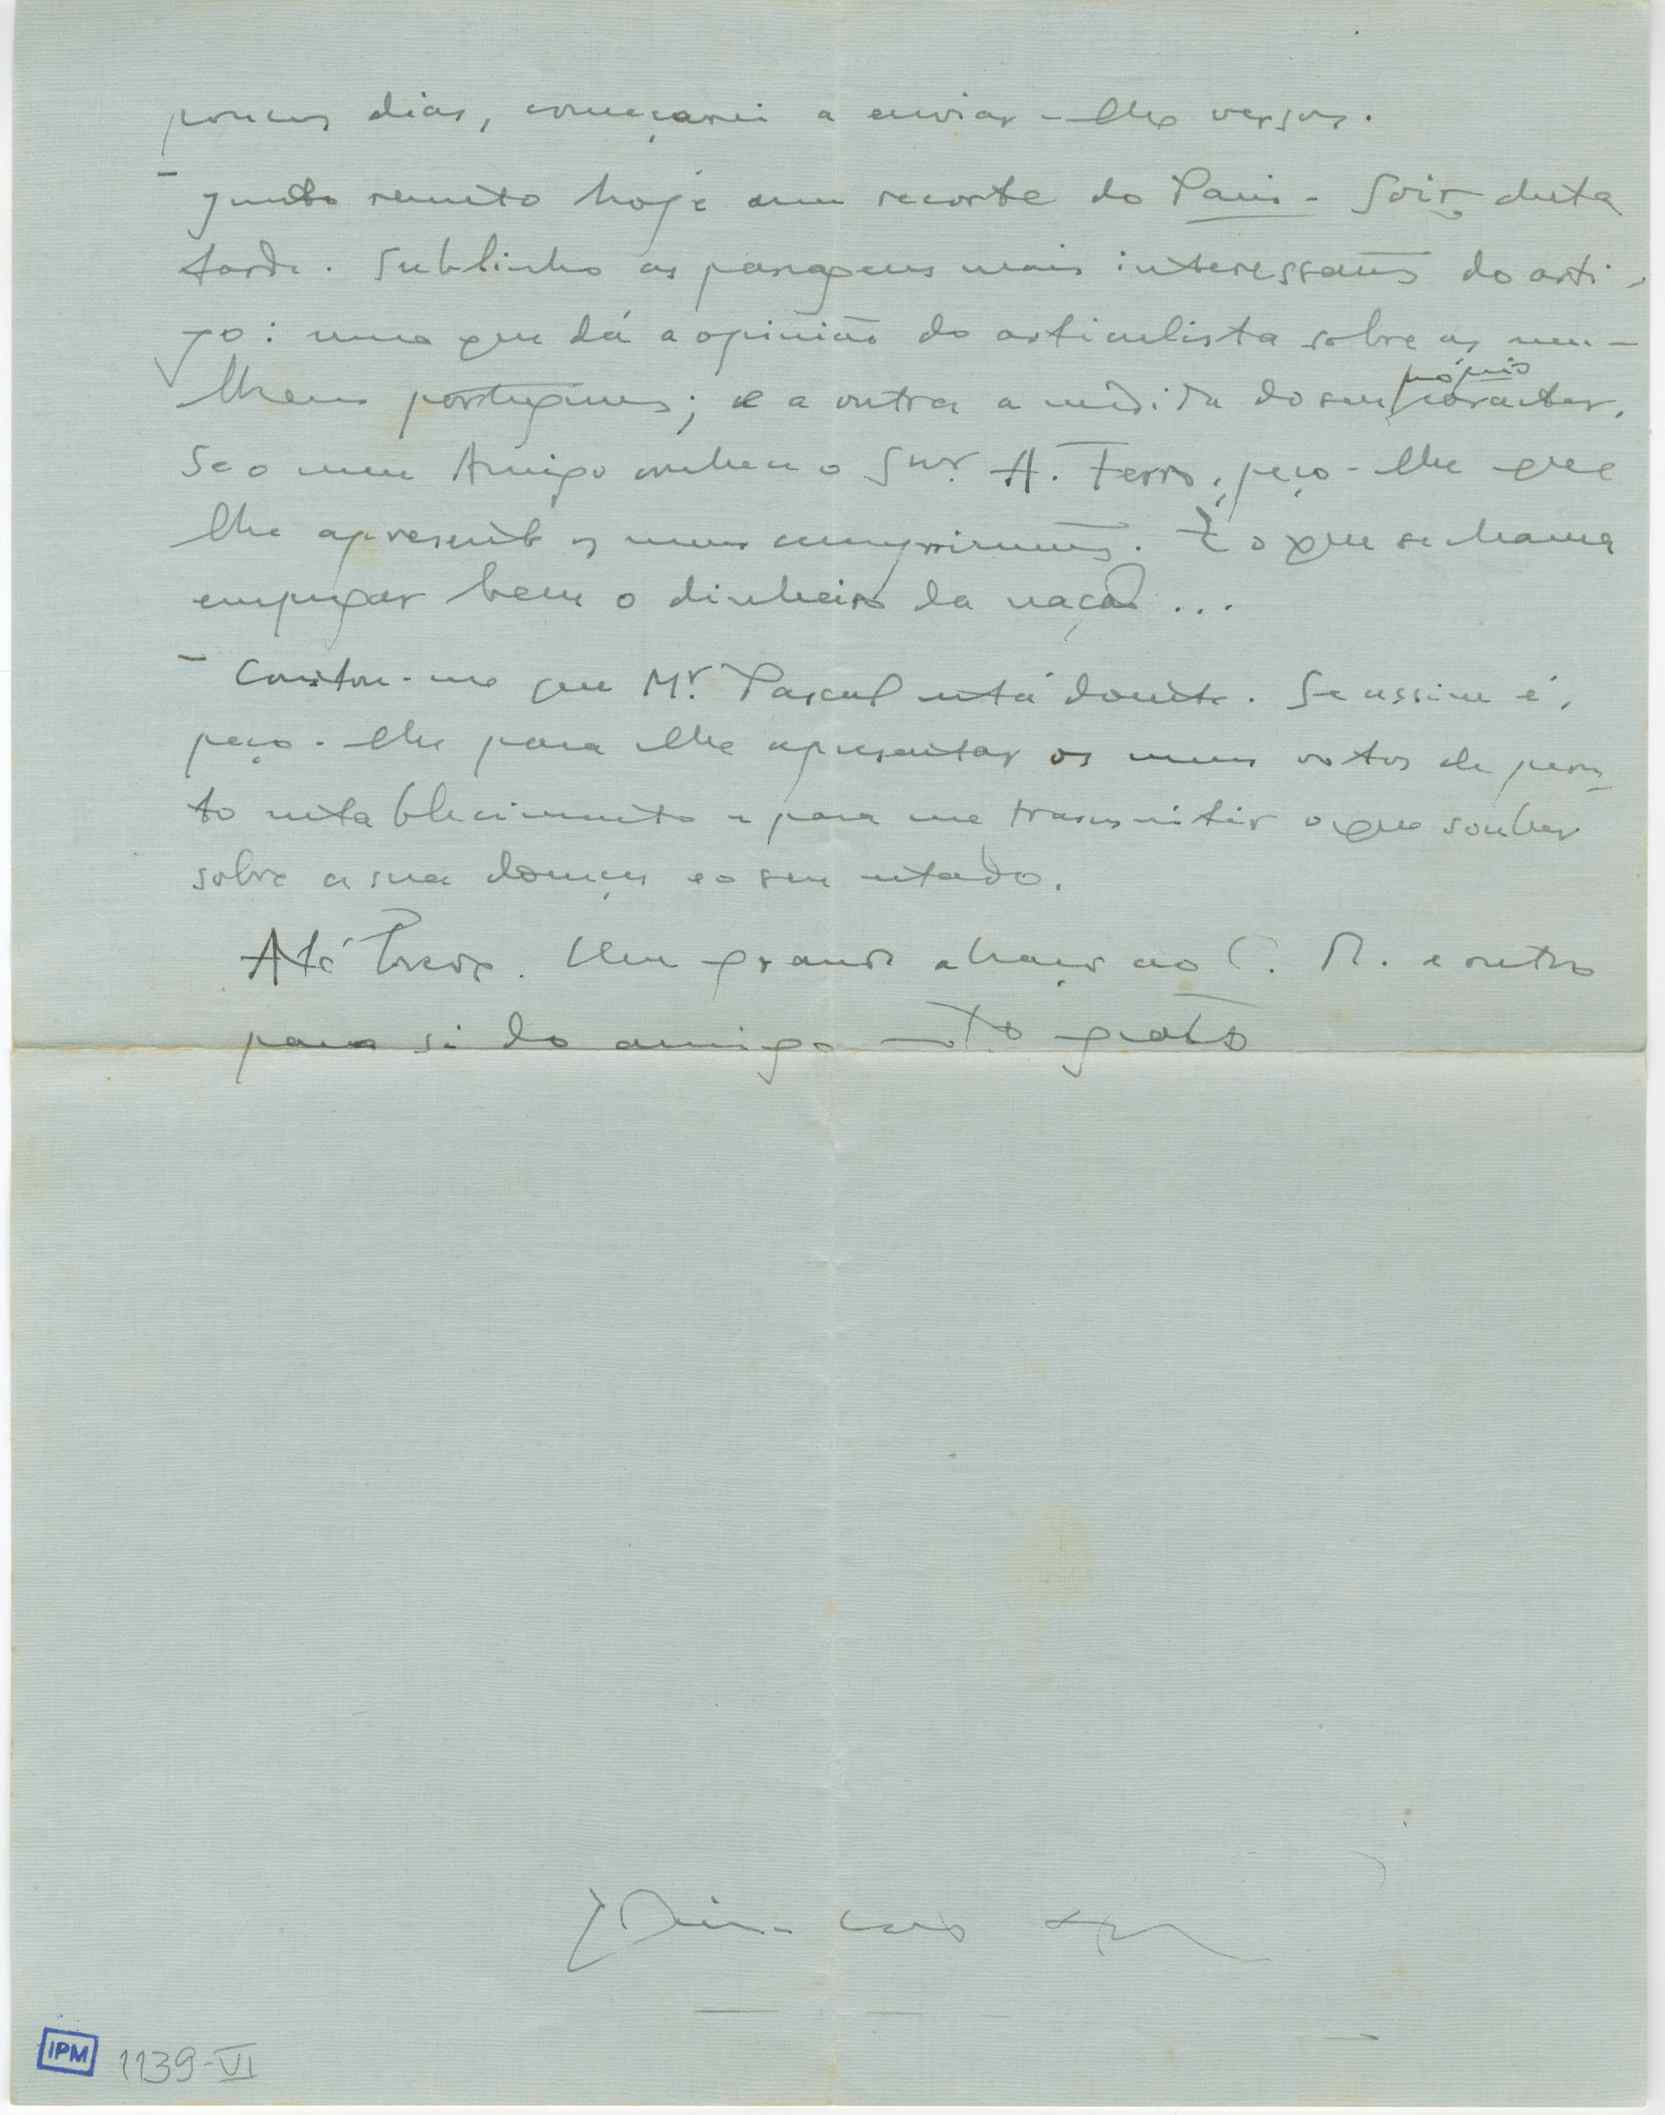 poucos dias, começarei a enviar-lhe versos.
- Junto remeto hoje um recorte do Paris-Soir desta
tarde. Sublinho as passagens mais interessantes do arti-
go: uma que dá a opinião do articulista sobre as mu-
lheres portuguesas; e a outra a medida do seu próprio caracter.
Se o meu Amigo conhece o Snr. A. Ferro, peço-lhe que
lhe apresente os meus cumprimentos. É o que se chama
empregar bem o dinheiro da nação...
- Constou-me que Mr. Pascal está doente. Se assim é,
peço-lhe para lhe apresentar os meus votos de pron-
to restablecimento e para me transmitir o que souber
sobre a sua doença e o seu estado.
Até breve. Um grande abraço ao C. M. e outro
para si do amigo mto grato
IPM 1139-VI